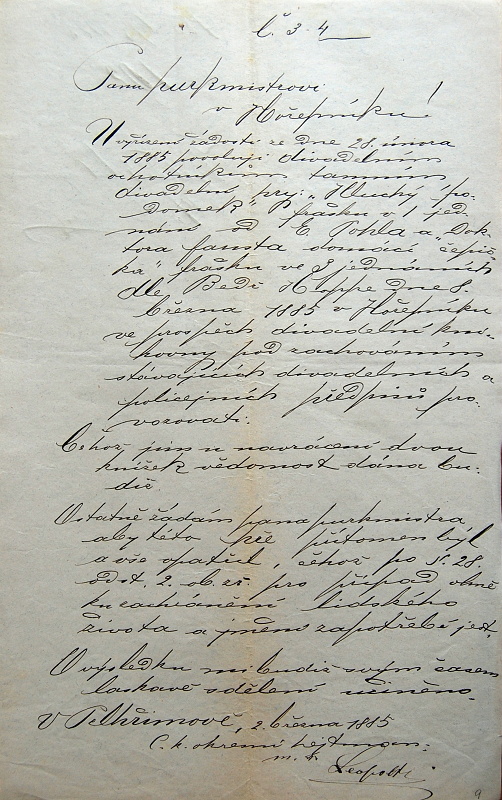 č. 3-4
Panu purkmistrovi
v Hořepníku!
U vyřízení žádosti ze dne 28. února
1885 povoluji divadelním
ochotníkům tamním
divadelní prý: „Hluchý po-
domek“ frašku o 1 jed-
nání od E. Pohla a „Dok-
tora fausta domácí čepič-
ka“ frašku ve 3 jednáních
dle Bedř. Hoppe dne 8.
března 1885 v Hořepníku
ve prospěch divadelní kni-
hovny pod zachováním
stávajících divadelních a
policejních předpisů pro-
vozovati.
Čehož jim u navrácení dvou
knížek vědomost dána bu-
diž.
Ostatně žádám pana purkmistra
aby této hře přítomen byl
a vše opatřil, čehož po §. 28,
odst. 2. ob. zř. pro případ ohně
ku zachránění lidského
života a jmění zapotřebí jest.
O výsledku mi budiž svým časem
laskavě sdělení učiněno.
V Pelhřimově, 2. března 1885
C. k. okresní hejtman:
9